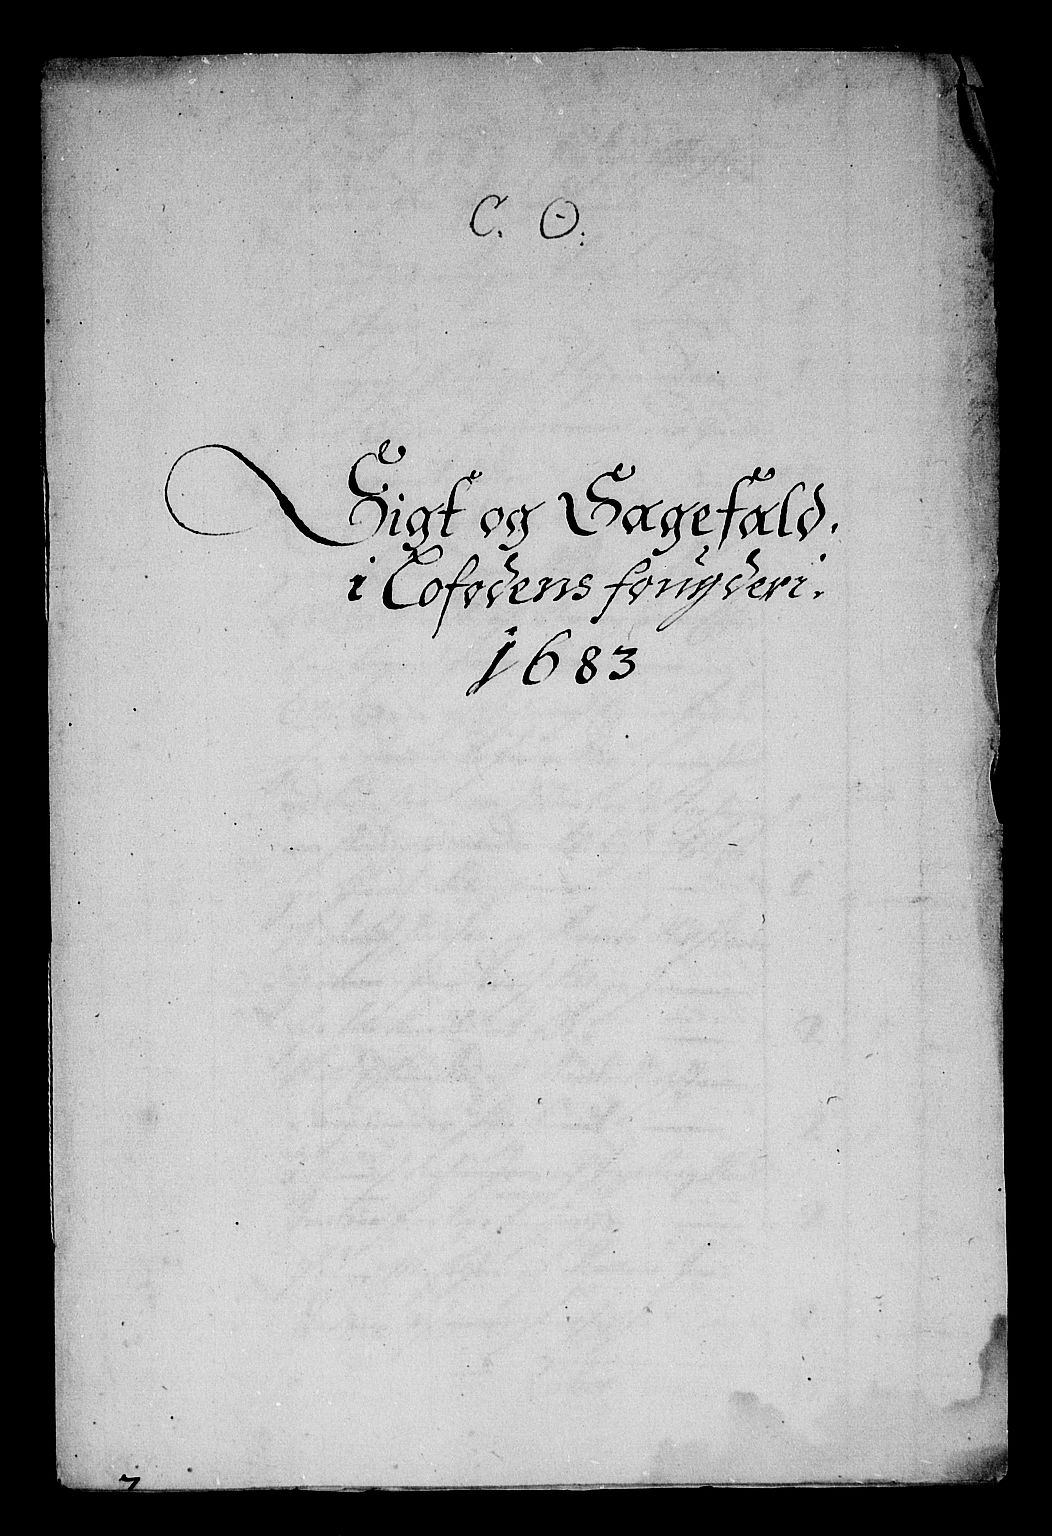 C. O.
Sigt og Sagefald.
i Lofodens fougderi.
1683